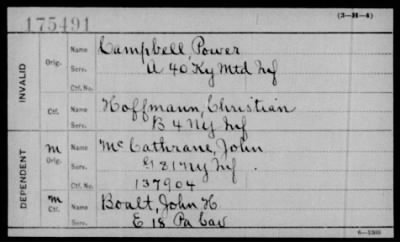 175491 (3-H-4)
INVALID
Orig. Name Campbell, Power
Serv. A 40 Ky Mtd Inf
Ctf. No.
Ctf. Name Hoffmann, Christian
Serv. B 4 NY Inf
DEPENDENT
m Orig. Name McCathrane, John
Serv. G 81 NY Inf.
Ctf. No. 137904
m Ctf. Name Boalt, John H
Serv. E 18 Pa Cav